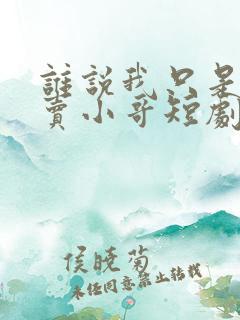 誰說我只是
賣小哥短劇
侯曉菊
未經同意禁止轉載